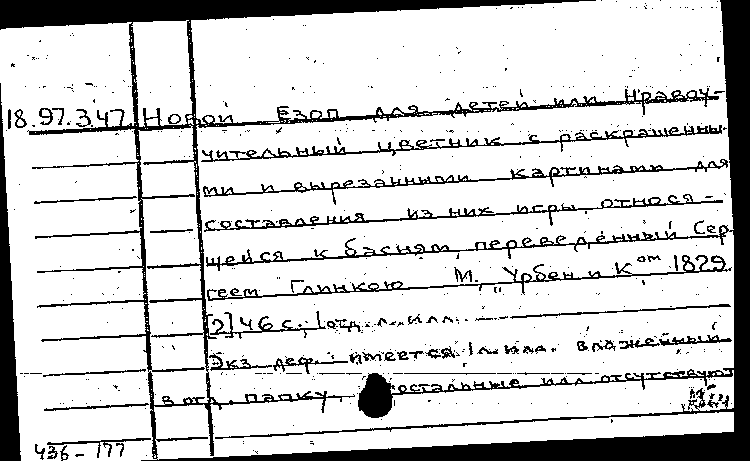 18.97.3.47 Новой Езоп для детей или Нравоу-
чительный цветник с раскрашенны-
ми и вырезанными картинами для
составления из них игры, относя-
щейся к басням, переведенный Сер
геем Глинкою М., Урбен и К ом 1829
[2] 46 с. 1 отд. л. илл.
Экз. деф.: имеется 1 л. илл. вложенный
в отд. папку, остальные илл отсутствуют
436-177